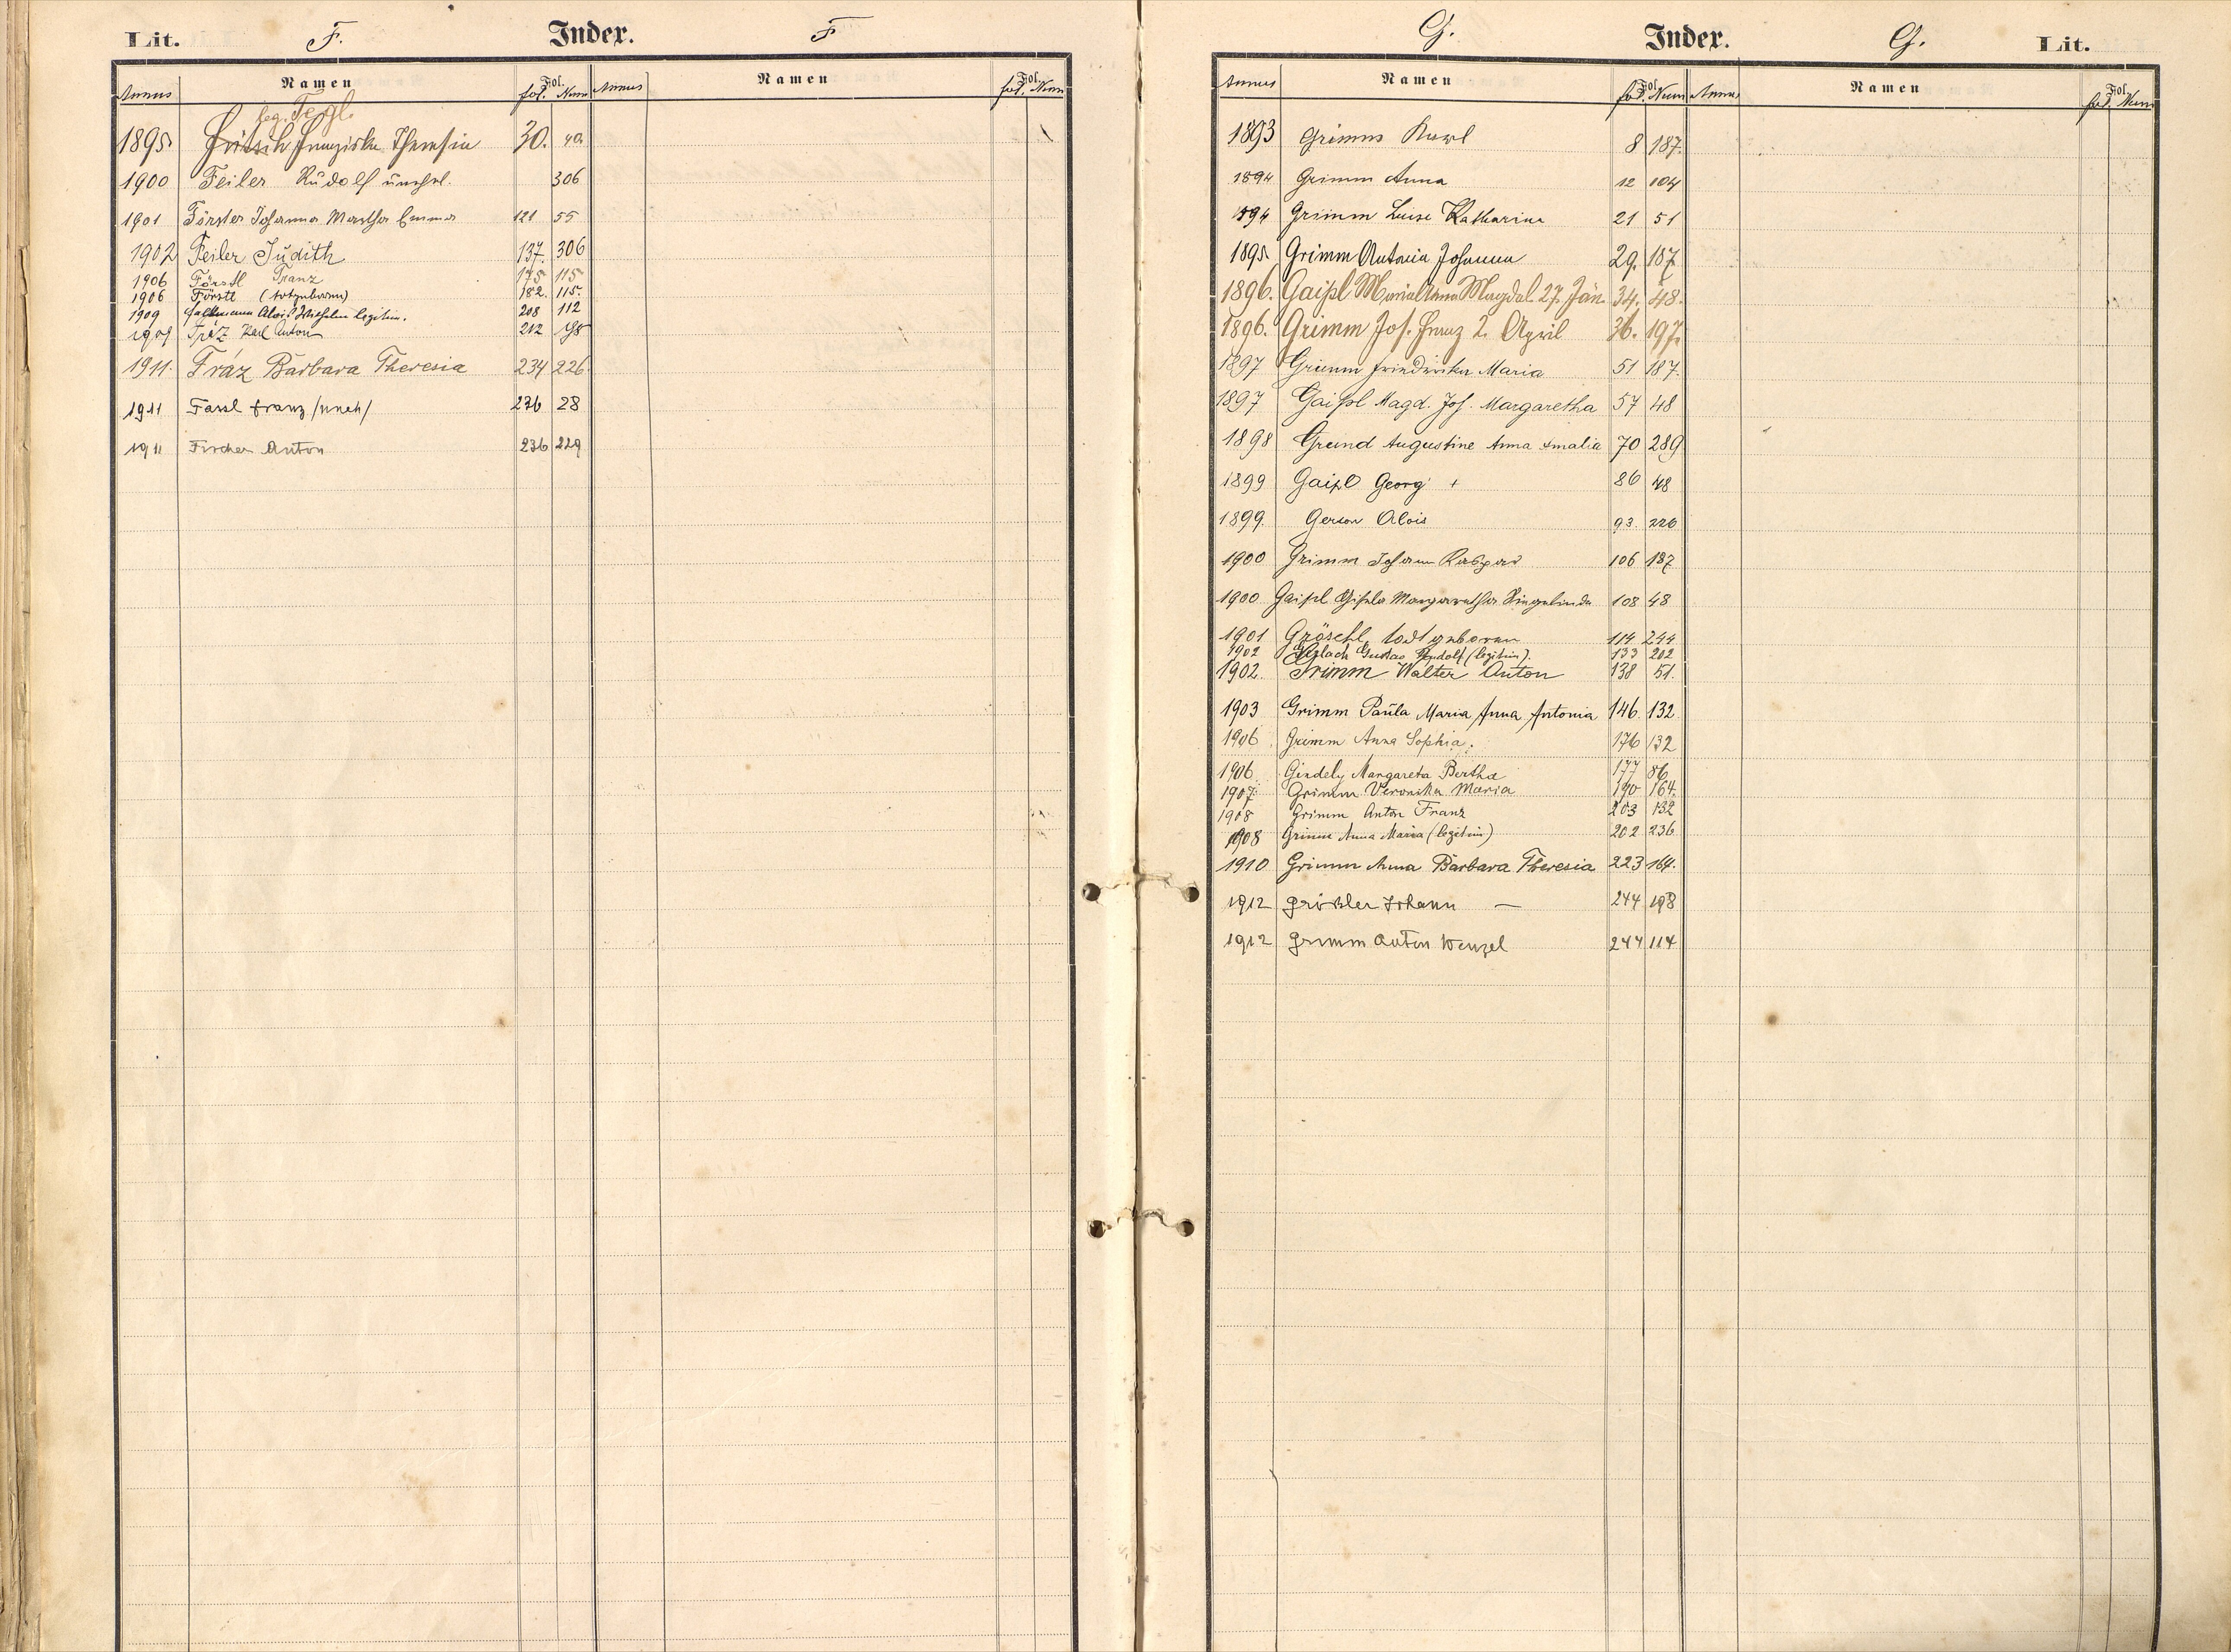 Lit. F. Index. F
Annus Namen fol. Num Annus Namen fol. Num
leg. Tergl.
1895 Fritsch Franziska Theresia 30. 40
1900 Feiler Rudolf unehel. 306
1901 Förster Johanna Martha Emma 121 55
1902 Feiler Judith 137. 306
1906 Förstl Franz 175 115
1906 Förstl (totgeboren) 182. 115.
1909 Alois Wilhelm legitim. 208 112
1909 Karl Anton 212 98
1911. Fráz Barbara Theresia 234 226
1911 Fassl Franz /uneh/ 236 28
1911 Fischer Anton 236 229
G. Index. G. Lit.
Annus Namen fol. Num Annus Namen fol. Num
1893 Grimm Karl 8 187.
1894 Grimm Anna 12 104
1894 Grimm Luise Katharina 21 51
1895 Grimm Antonia Johanna 29. 187
1896. Gaipl Maria Anna Magdal. 27. Jän. 34. 48.
1896. Grimm Jos. Franz 2. April 36. 197.
1897 Grimm Friedrika Maria 51 187.
1897 Gaipl Magd. Jos. Margaretha 57 48
1898 Grund Augustine Anna Amalia 70 289
1899 Gaipl Georg + 86 48
1899. Gerson Alois 93. 226
1900 Grimm Johann Kaspar 106 187
1900 Gaipl Gisela Margaretha 108 48
1901 Gröschl, todtgeboren 114 244
1902 Gerlach Gustav Rudolf (legitim). 133 202
1902. Grimm Walter Anton 138 51.
1903 Grimm Paula Maria Anna Antonia 146. 132
1906 Grimm Anna Sophia. 176 132
1906 Gindely Margareta Bertha 177 86
1907. Grimm Veronika Maria 190 164.
1908 Grimm Anton Franz 203 132
1908 Grimm Anna Maria (legitim) 202 236
1910 Grimm Anna Barbara Theresia 223 164.
1912 Johann — 244 198
1912 Grimm Anton Wenzel 244 114